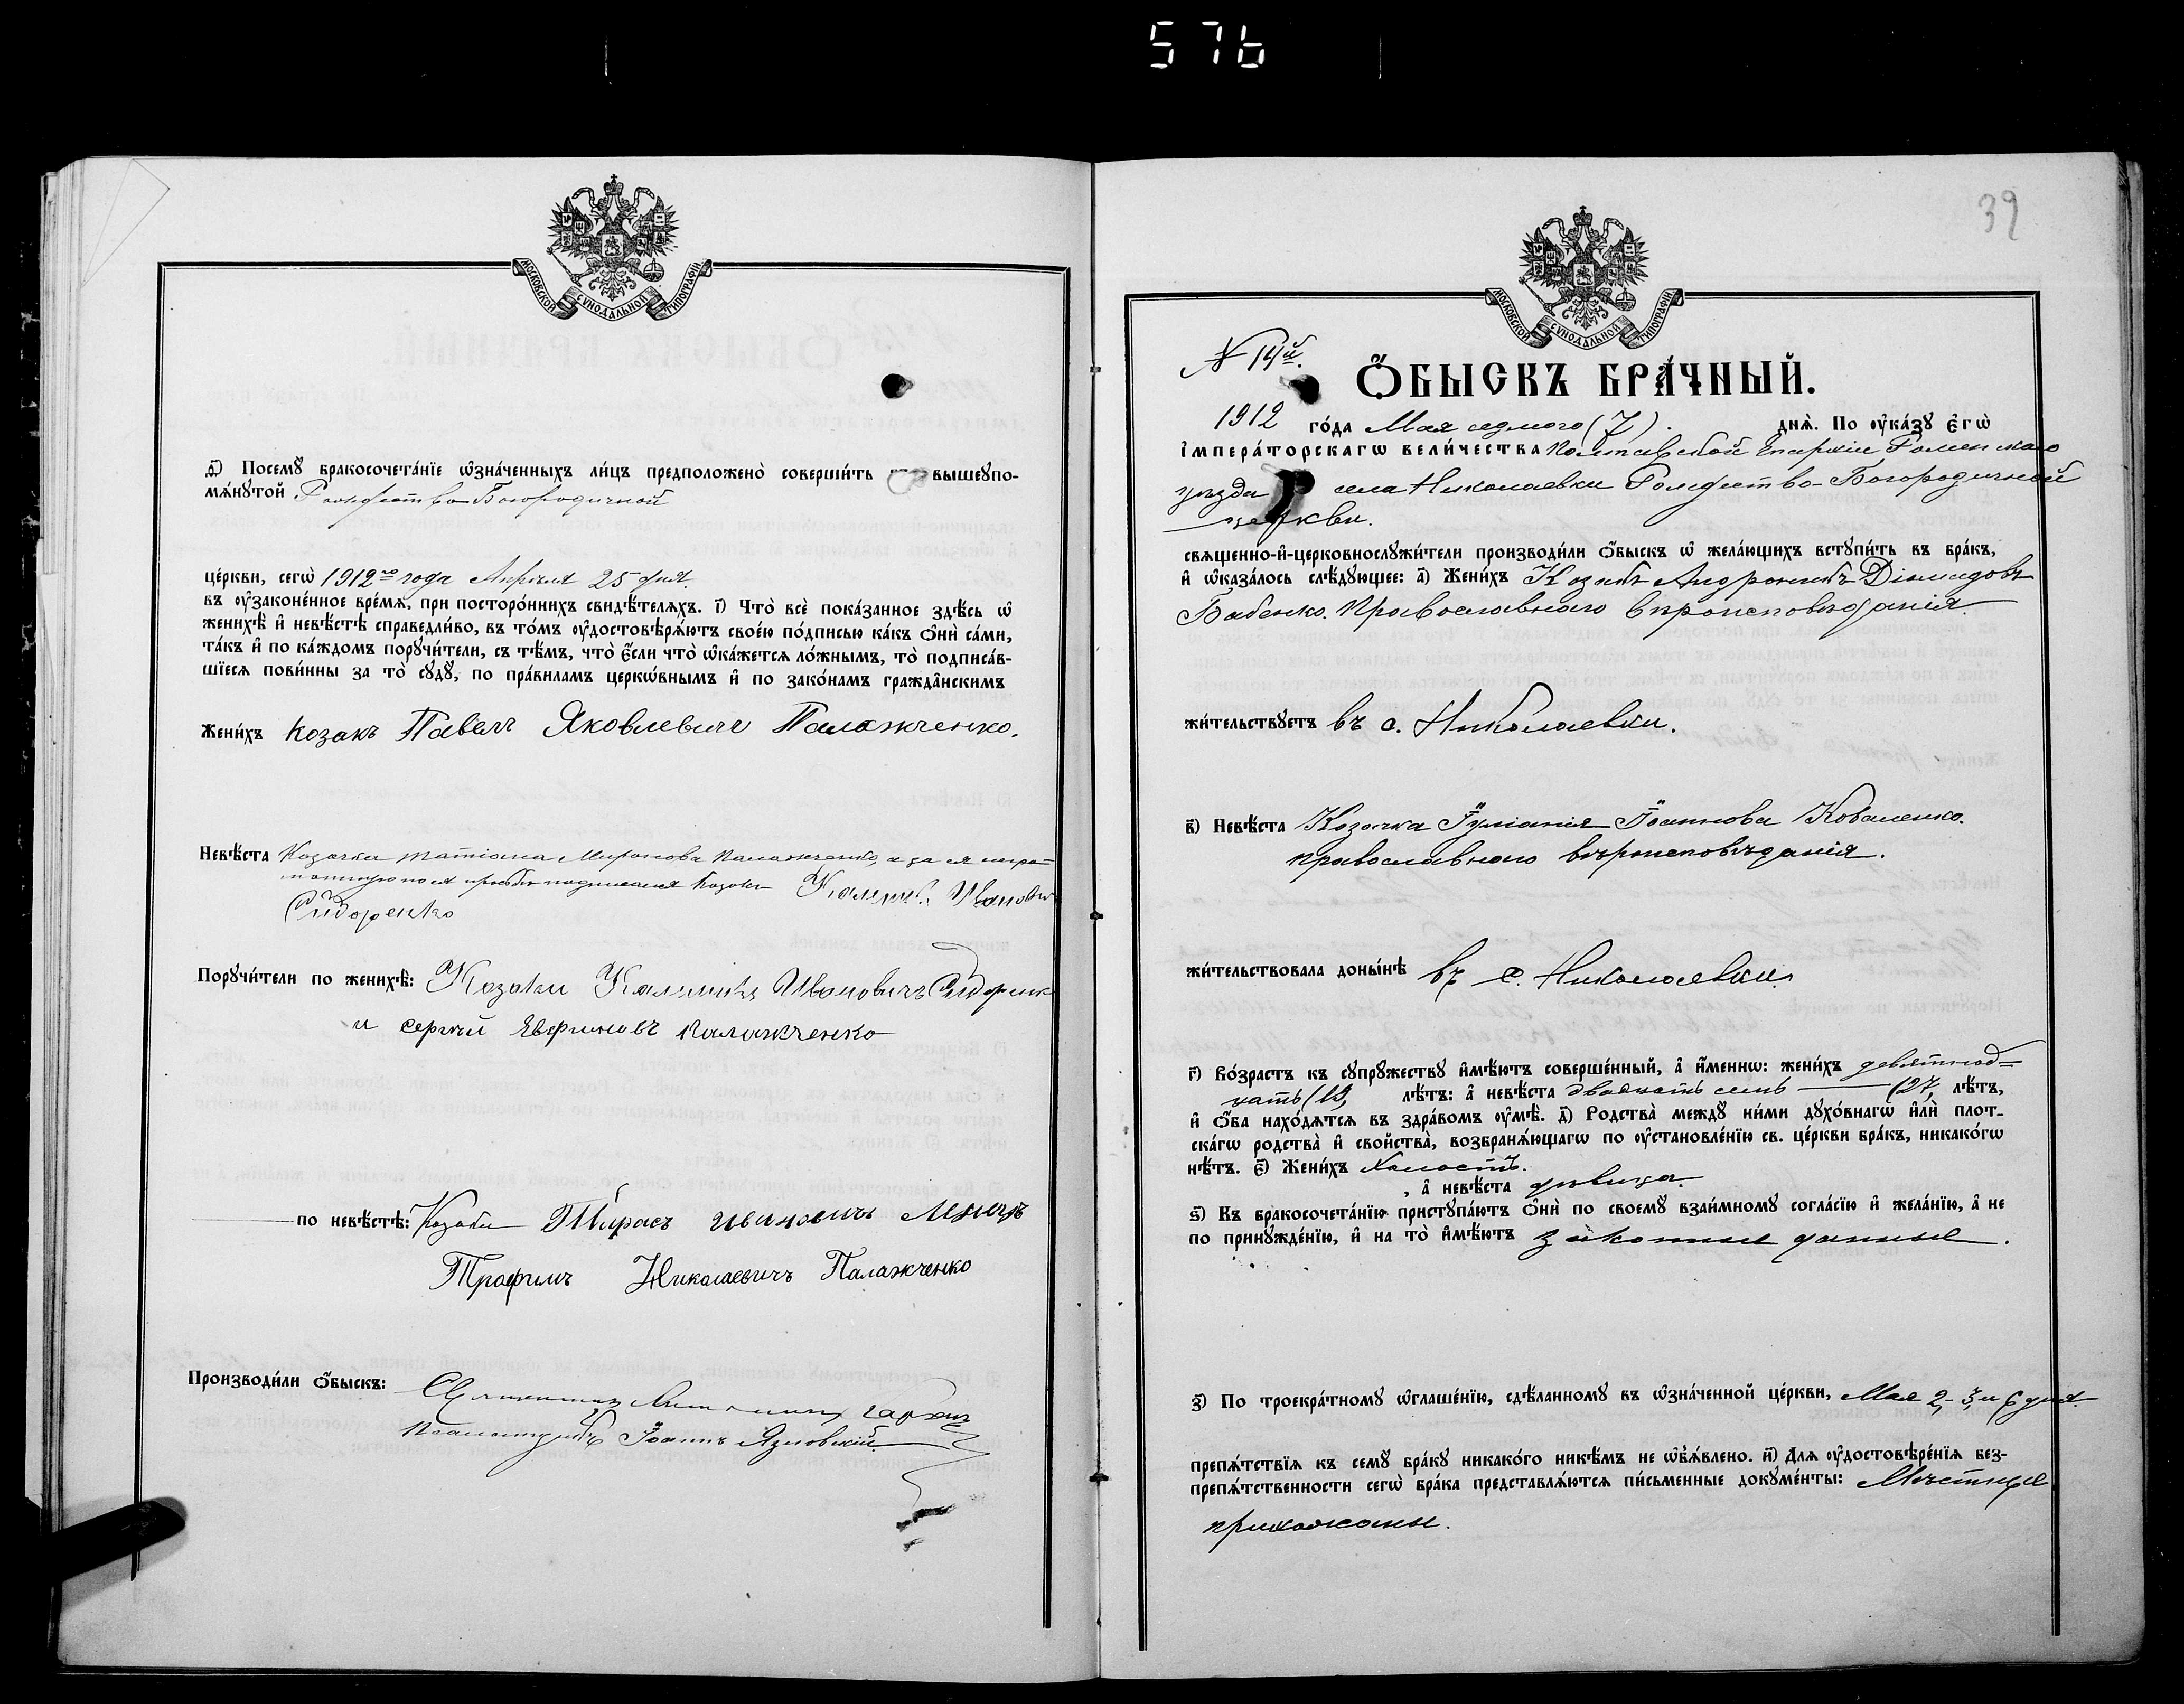 576
МОСКОВСКОЙ СѴНОДАЛЬНОЙ ТИПОГРАФІИ.
Ѳ҃) Посемꙋ̀ бракосочета́нїе ѡ҆зна́ченныхъ ли́цъ предположено̀ соверши́ть въ вышеꙋпо-
мѧ́нꙋтой Рождество-Богородичной
це́ркви, сегѡ̀ 1912го года Апрѣля 25 дня
въ ᲂу҆зако́ненное вре́мѧ, при посторо́ннихъ свидѣ́телѧхъ. І҃) Что̀ всѐ пока́занное здѣ́сь ѡ҆
женихѣ̀ и҆ невѣ́стѣ справедли́во, въ то́мъ ᲂу҆достовѣрѧ́ютъ свое́ю по́дписью ка́къ ѻ҆нѝ са́ми,
та́къ и҆ по ка́ждомъ порꙋчи́тели, съ тѣ́мъ, что̀ є҆́сли что̀ ѡ҆ка́жетсѧ ло́жнымъ, то̀ подписа́в-
шїесѧ пови́нны за то̀ сꙋдꙋ̀, по пра́виламъ церкѡ́внымъ и҆ по зако́намъ гражда̂нскимъ
Жени́хъ козакъ Павелъ Яковлевичъ Палажченко.
Невѣ́ста Козачка Татіана Миронова Палажченко, а за ея негра-
мотную по ея просьбѣ подписался Козакъ Калинникъ Ивановъ
Сидоренко
Порꙋчи́тели по женихѣ̀: Козаки Калинникъ Ивановичъ Сидоренко
и сергѣй Палажченко
по невѣ́стѣ: Козаки Тарасъ ивановичъ
Трофимъ Николаевичъ Палажченко
Производи́ли ѻ҆́быскъ: Священникъ
Псаломщикъ Іоаннъ Язловскій
39
МОСКОВСКОЙ СѴНОДАЛЬНОЙ ТИПОГРАФІИ.
№ 14й.
Ѻ҆́БЫСКЪ БРА́ЧНЫЙ.
1912 го́да Мая седмого (7). днѧ̀. По ᲂу҆ка́зꙋ Є҆гѡ̀
І҆мпера́торскагѡ вели́чества Полтавской Епархіи Роменскаго
уѣзда села Николаевки Рождество-Богородичной
церкви.
свѧщенно-и҆-церковнослꙋжи́тели производи́ли ѻ҆́быскъ ѡ҆ жела́ющихъ встꙋпи́ть въ бра́къ,
и҆ ѡ҆каза́лось слѣ́дꙋющее: а҃) Жени́хъ Козакъ Андроникъ Діомидовъ
Бабенко. Православнаго вѣроисповѣданія.
жи́тельствꙋетъ въ с. Николаевки.
в҃) Невѣ́ста Козачка Іуліанія Іоаннова Коваленко.
православнаго вѣроисповѣданія.
жи́тельствовала доны́нѣ въ с. Николаевки.
г҃) Во́зрастъ къ сꙋпрꙋ́жествꙋ и҆мѣ́ютъ соверше́нный, а҆ и҆́меннѡ: жени́хъ девятнад-
цать (19) лѣ́тъ: а҆ невѣ́ста двадцать семь (27) лѣ́тъ,
и҆ ѻ҆́ба нахо́дѧтсѧ въ здра́вомъ ᲂу҆мѣ̀. д҃) Родства̀ междꙋ̀ ни́ми дꙋхо́внагѡ и҆лѝ плот-
ска́гѡ родства̀ и҆ свойства̀, возбранѧ́ющагѡ по ᲂу҆становле́нїю св. це́ркви бра́къ, никако́гѡ
нѣ́тъ. є҃) Жени́хъ Холостъ.
, а҆ невѣ́ста дѣвица.
ѕ҃) Къ бракосочета́нїю пристꙋпа́ютъ ѻ҆нѝ по своемꙋ̀ взаи́мномꙋ согла́сїю и҆ жела́нїю, а҆ не
по принꙋжде́нїю, и҆ на то̀ и҆мѣ́ютъ законные данные.
з҃) По троекра́тномꙋ ѡ҆глаше́нїю, сдѣ́ланномꙋ въ ѡ҆зна́ченной це́ркви, Мая 2, 3 и 6 дня
препѧ́тствїѧ къ семꙋ̀ бра́кꙋ никако́го никѣ́мъ не ѡ҆б̾ѧ́влено. и҃) Для ᲂу҆достовѣре́нїѧ без-
препѧ́тственности сегѡ̀ бра́ка представлѧ́ютсѧ пи́сьменные докꙋме́нты: Мѣстные
прихожане.